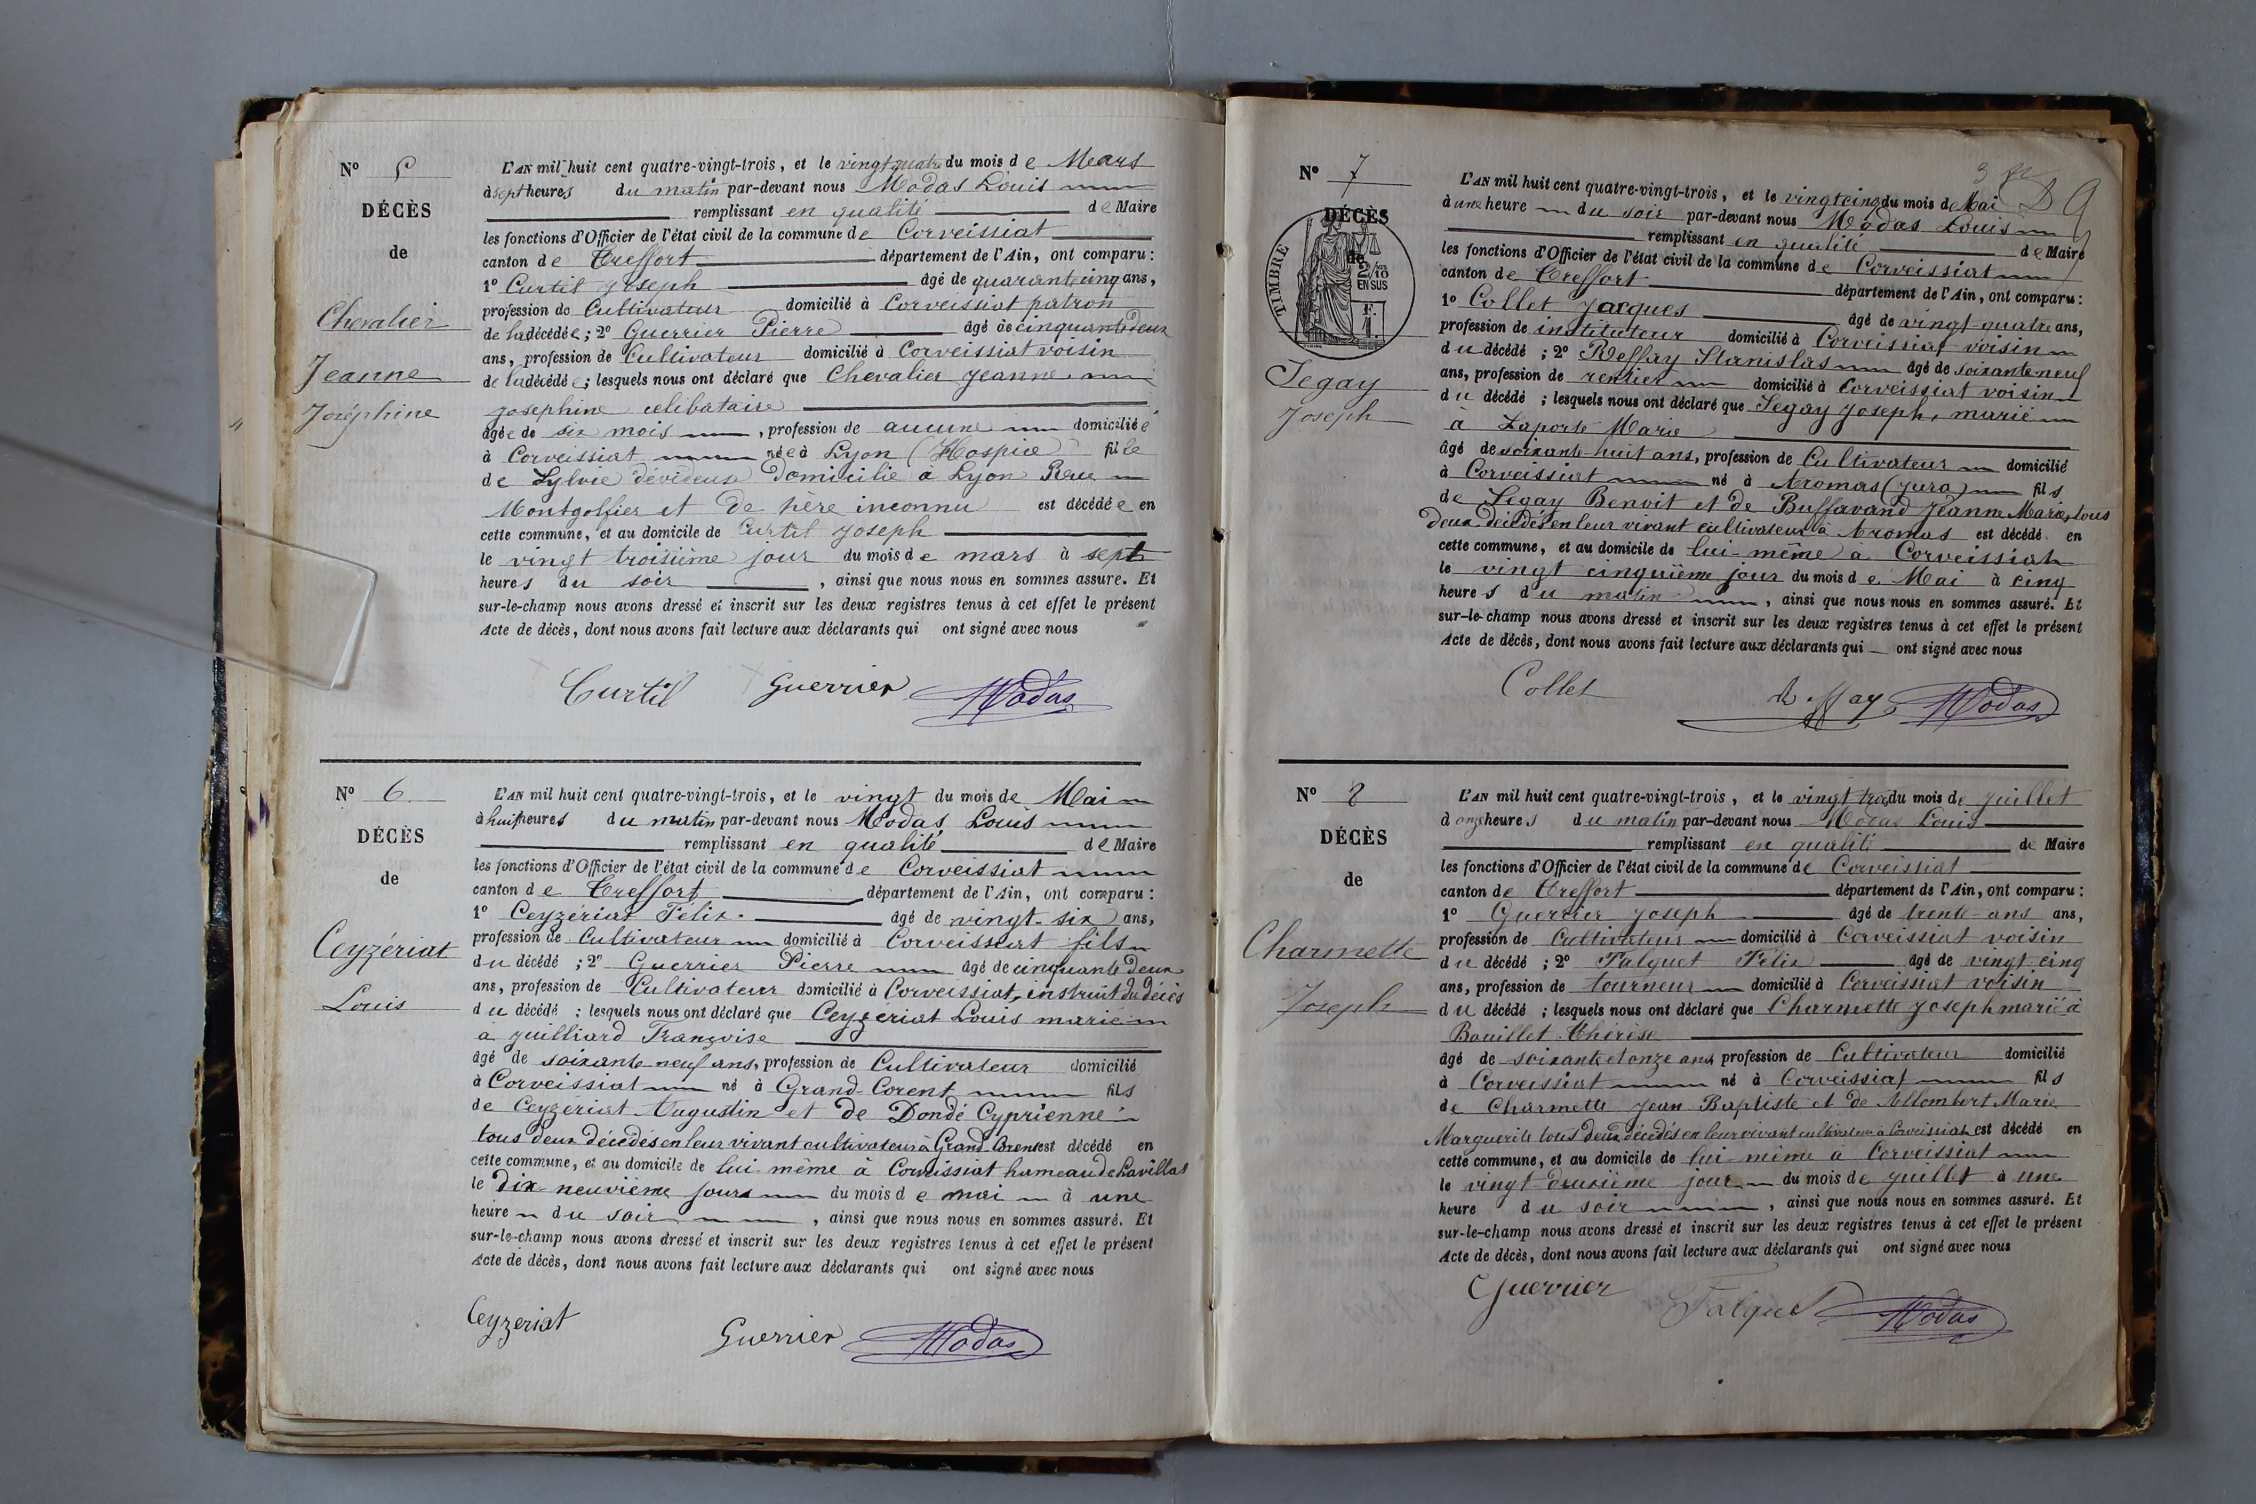 N° 5
DÉCÈS
de
Chevalier
Jeanne
Joséphine
L'AN mil huit cent quatre-vingt-trois, et le vingt quatre du mois de Mars
à sept heures du matin par-devant nous Modas Louis
remplissant en qualité de Maire
les fonctions d'Officier de l'état civil de la commune de Corveissiat
canton de Treffort département de l'Ain, ont comparu :
1° Curtil Joseph âgé de quarante cinq ans,
profession de Cultivateur domicilié à Corveissiat patron
de la décédée ; 2° Guerrier Pierre âgé de cinquante deux
ans, profession de Cultivateur domicilié à Corveissiat voisin
de la décédée ; lesquels nous ont déclaré que Chevalier Jeanne
Josephine celibataire
âgée de six mois, profession de aucune domicilié
à Corveissiat née à Lyon (Hospice) fille
de Sylvie dévideuse Domicilié à Lyon Rue
Montgolfier et de père inconnu est décédée en
cette commune, et au domicile de Curtil Joseph
le vingt troisième jour du mois de mars à sept
heures du soir, ainsi que nous nous en sommes assuré. Et
sur-le-champ nous avons dressé et inscrit sur les deux registres tenus à cet effet le présent
Acte de décès, dont nous avons fait lecture aux déclarants qui ont signé avec nous
Curtil Guerrier Modas
N° 6
DÉCÈS
de
Ceyzériat
Louis
L'AN mil huit cent quatre-vingt-trois, et le vingt du mois de Mai
à huit heures du matin par-devant nous Modas Louis
remplissant en qualité de Maire
les fonctions d'Officier de l'état civil de la commune de Corveissiat
canton de Treffort département de l'Ain, ont comparu :
1° Ceyzériat Félix. âgé de vingt-six ans,
profession de Cultivateur domicilié à Corveissiat fils
du décédé ; 2° Guerrier Pierre âgé de cinquante deux
ans, profession de Cultivateur domicilié à Corveissiat, instruit du décès
du décédé ; lesquels nous ont déclaré que Ceyzeriat Louis marié
à Juilliard Françoise
âgé de soixante neuf ans, profession de Cultivateur domicilié
à Corveissiat né à Grand-Corent fils
de Ceyzériat Augustin et de Dondé Cyprienne
tous deux décédés en leur vivant cultivateurs à Grand Corent est décédé en
cette commune, et au domicile de lui même à Corveissiat hameau de Lavillat
le dix-neuvième jours du mois de mai à une
heure du soir, ainsi que nous nous en sommes assuré. Et
sur-le-champ nous avons dressé et inscrit sur les deux registres tenus à cet effet le présent
Acte de décès, dont nous avons fait lecture aux déclarants qui ont signé avec nous
Ceyzeriat Guerrier Modas
N° 7
DÉCÈS
de
TIMBRE
2/10
EN SUS
F. 1
Segay
Joseph
L'AN mil huit cent quatre-vingt-trois, et le vingt cinq du mois de Mai
à une heure du soir par-devant nous Modas Louis
remplissant en qualité de Maire
les fonctions d'Officier de l'état civil de la commune de Corveissiat
canton de Treffort département de l'Ain, ont comparu :
1° Collet Jacques âgé de vingt-quatre ans,
profession de instituteur domicilié à Corveissiat voisin
du décédé ; 2° Reffay Stanislas âgé de soixante-neuf
ans, profession de rentier domicilié à Corveissiat voisin
du décédé ; lesquels nous ont déclaré que Segay Joseph, marié
à Laporte Marie
âgé de soixante-huit ans, profession de Cultivateur domicilié
à Corveissiat né à Aromas (Jura) fils
de Segay Benoit et de Buffavand Jeanne Marie, tous
deux décédés en leur vivant cultivateurs à Aromas est décédé en
cette commune, et au domicile de lui-même à Corveissiat
le vingt cinquième jour du mois de Mai à cinq
heures du matin, ainsi que nous nous en sommes assuré. Et
sur-le-champ nous avons dressé et inscrit sur les deux registres tenus à cet effet le présent
Acte de décès, dont nous avons fait lecture aux déclarants qui ont signé avec nous
Collet Reffay Modas
N° 8
DÉCÈS
de
Charmette
Joseph
L'AN mil huit cent quatre-vingt-trois, et le vingt trois du mois de Juillet
à onze heures du matin par-devant nous Modas Louis
remplissant en qualité de Maire
les fonctions d'Officier de l'état civil de la commune de Corveissiat
canton de Treffort département de l'Ain, ont comparu :
1° Guerrier Joseph âgé de trente-ans ans,
profession de Cultivateur domicilié à Corveissiat voisin
du décédé ; 2° Falquet Félix âgé de vingt-cinq
ans, profession de tourneur domicilié à Corveissiat voisin
du décédé ; lesquels nous ont déclaré que Charmette Joseph marié à
Bouillet Thérèse
âgé de soixante et onze ans profession de Cultivateur domicilié
à Corveissiat né à Corveissiat fils
de Charmette Jean Baptiste et de Allombert Marie
Marguerite tous deux décédés en leur vivant cultivateurs à Corveissiat est décédé en
cette commune, et au domicile de lui-même à Corveissiat
le vingt deuxième jour du mois de Juillet à une
heure du soir, ainsi que nous nous en sommes assuré. Et
sur-le-champ nous avons dressé et inscrit sur les deux registres tenus à cet effet le présent
Acte de décès, dont nous avons fait lecture aux déclarants qui ont signé avec nous
Guerrier Falquet Modas